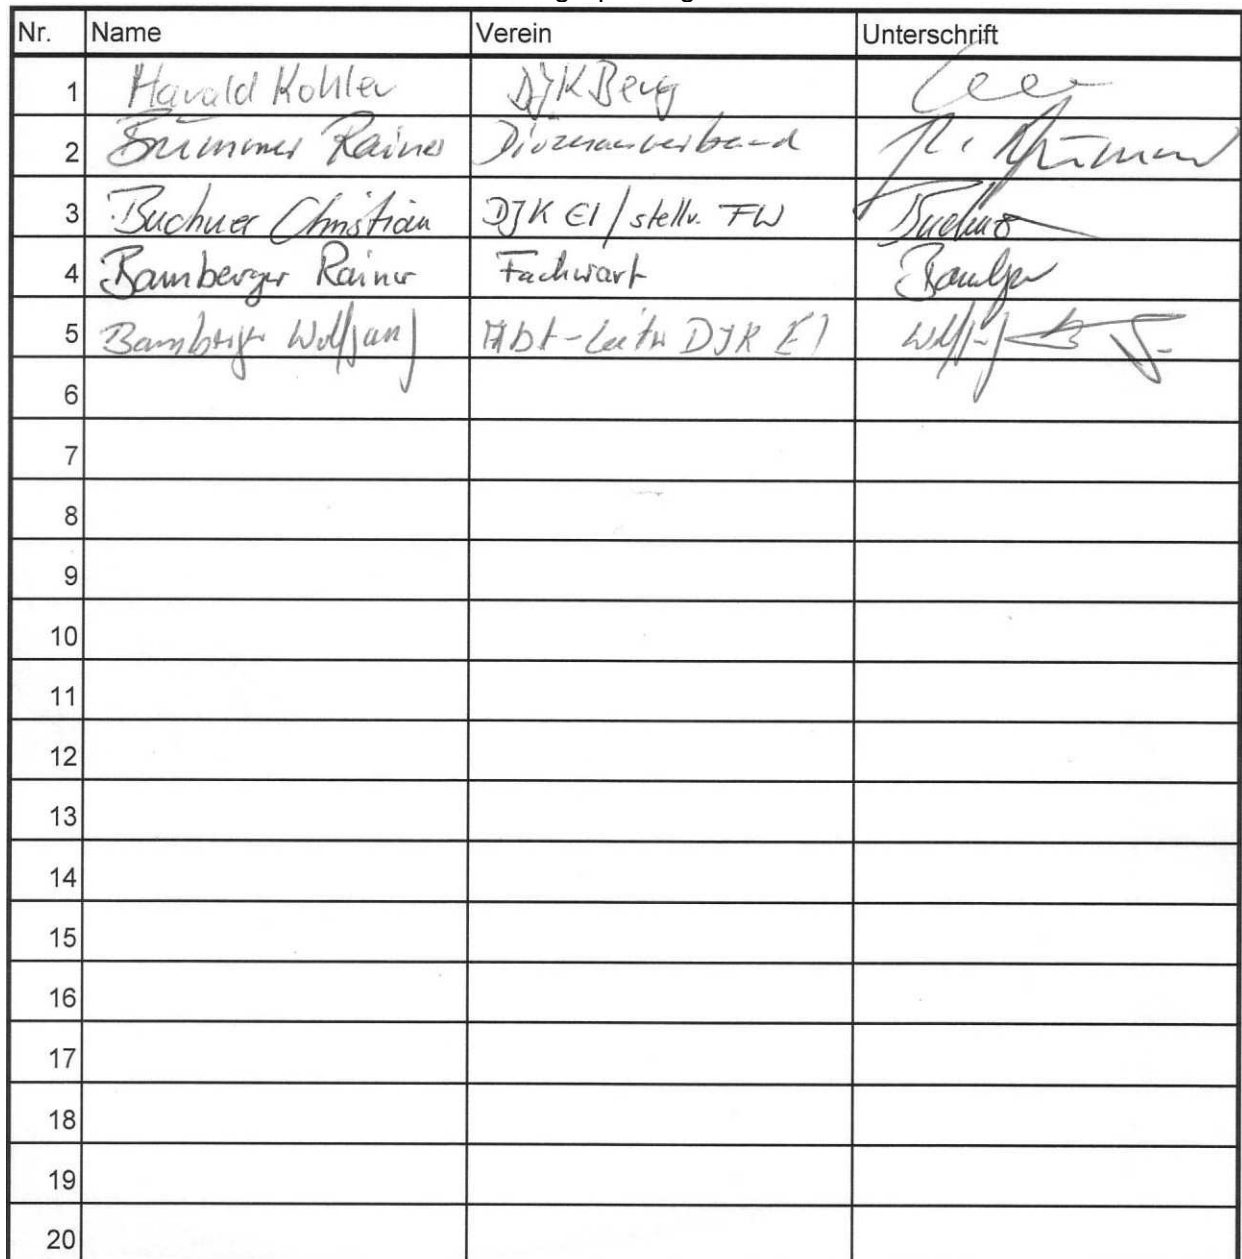 Nr. Name Verein Unterschrift
1 Harald Kohler DJK Berg
2 Brümmer Rainer Diözesanverband R. Brümmer
3 Buchner Christian DJK EI / stellv. FW Buchner
4 Bamberger Rainer Fachwart
5 Bamberger Wolfgang Abt-Leiter DJK EI
6
7
8
9
10
11
12
13
14
15
16
17
18
19
20